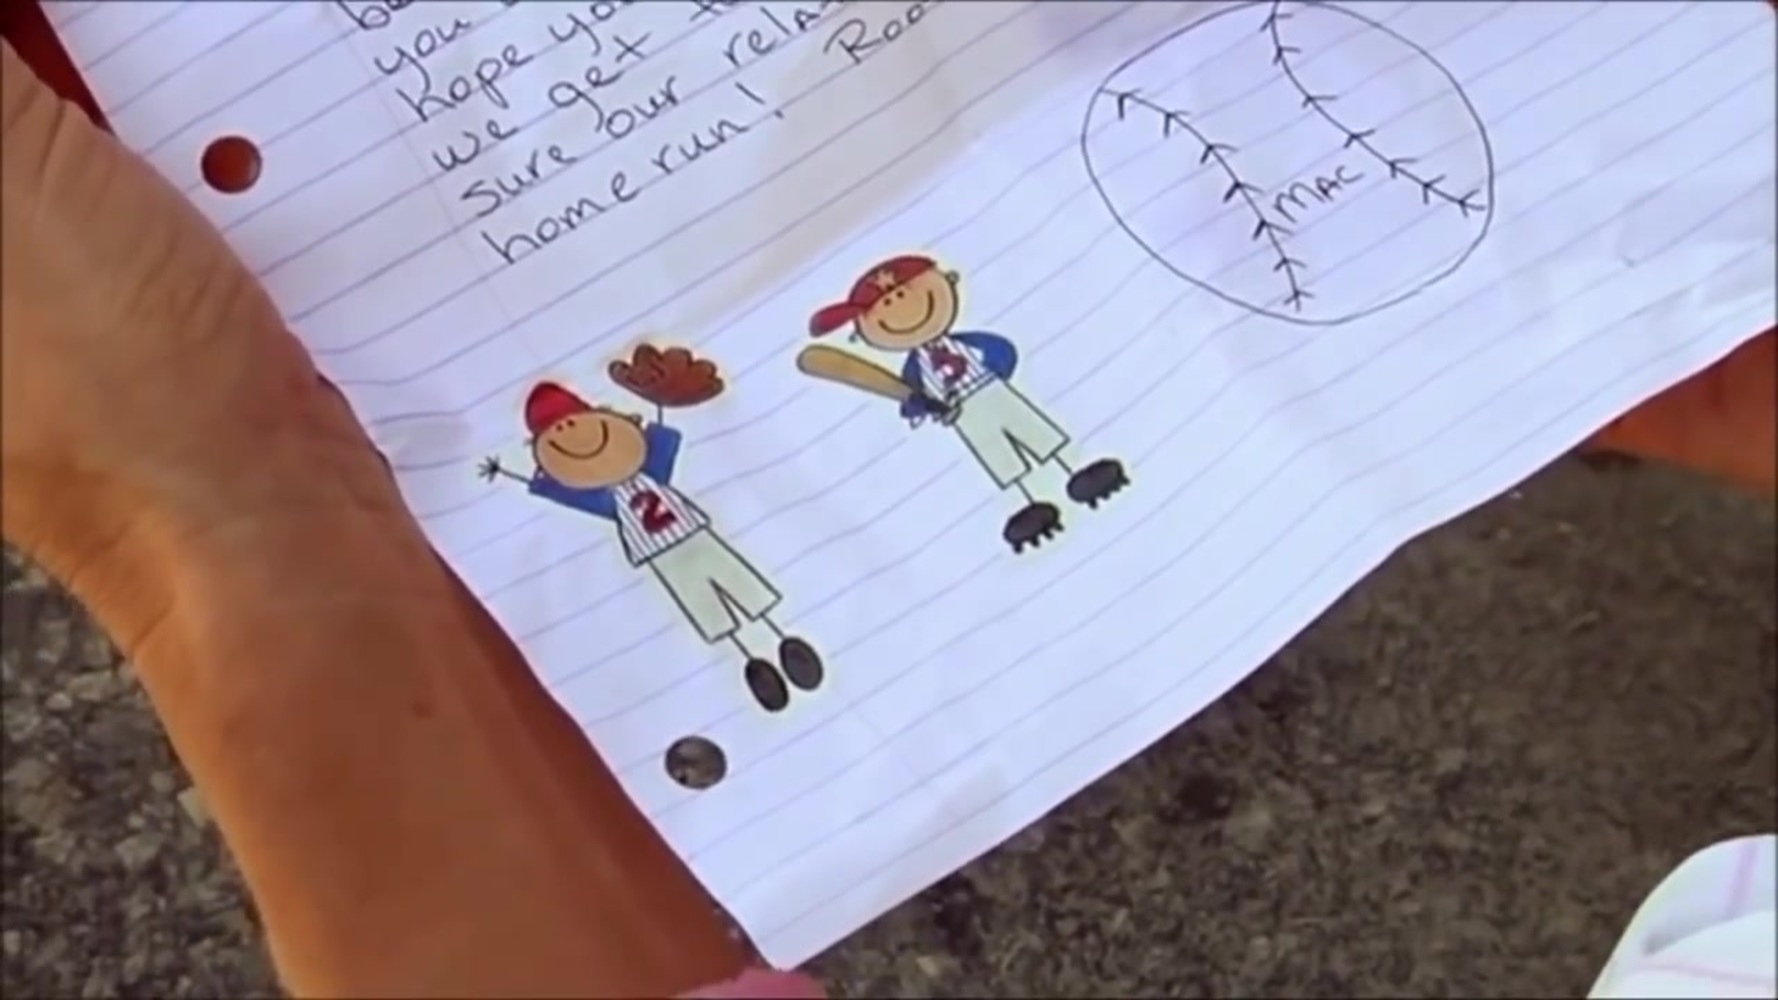 you
hope you
we get
sure our
home run!
MAC
2
5